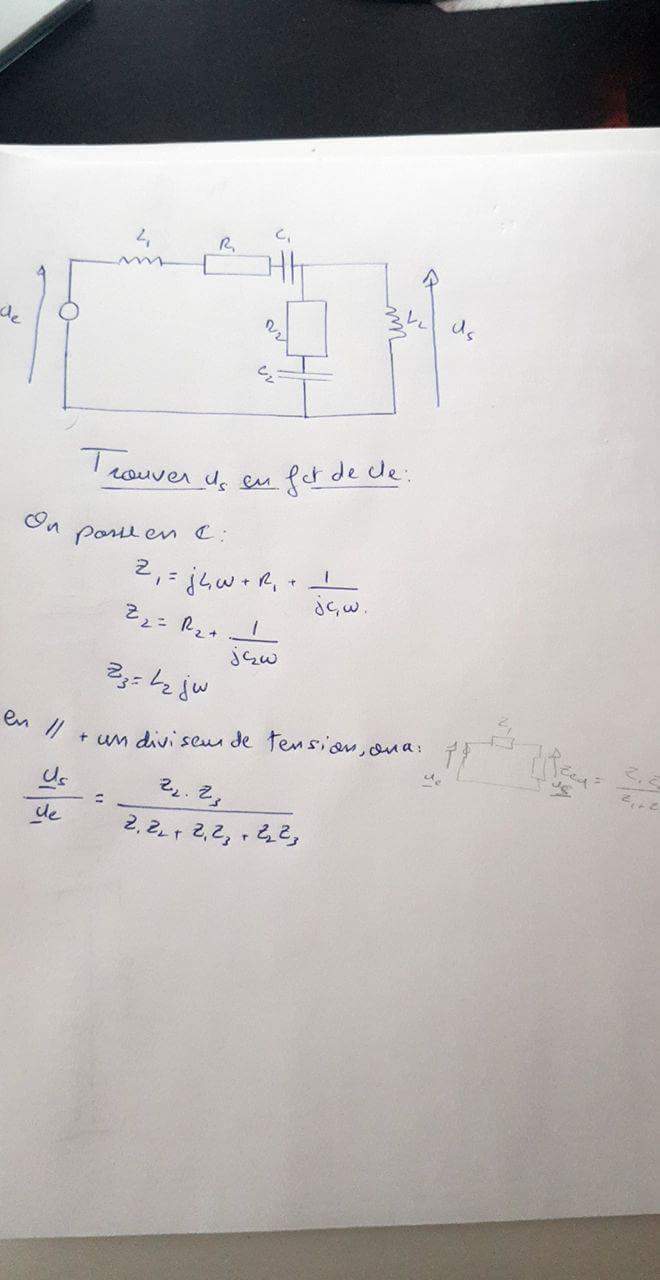 L₁
R₁
C₁
ue
R₂
C₂
L₂
us
Trouver us en fct de ue:
On passe en ℂ:
Z₁ = jL₁ω + R₁ + 1/(jC₁ω).
Z₂ = R₂ + 1/(jC₂ω)
Z₃ = L₂ jω
en // + un diviseur de tension, on a:
us/ue = Z₂.Z₃/(Z₁Z₂ + Z₁Z₃ + Z₂Z₃)
Z₁
ue
us
Zeq =